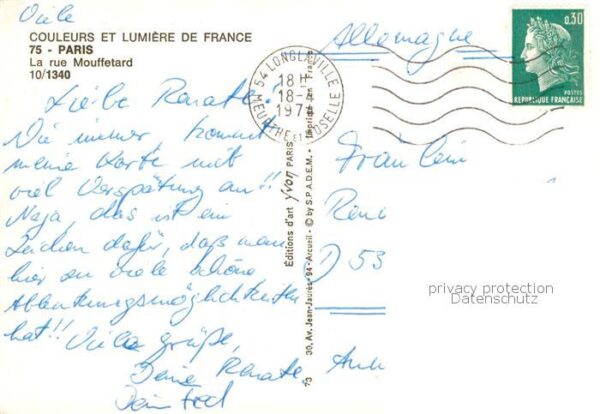 COULEURS ET LUMIÈRE DE FRANCE
75 - PARIS
La rue Mouffetard
10/1340
Liebe Renate!
Wie immer, kommt
meine Karte mit
viel Verspätung an!!
Naja, das ist ein
Zeichen dafür, daß man
hier so viele schöne
Ablenkungsmöglichkeiten
hat!! Viele Grüße,
Deine Renate
Éditions d'art yvon PARIS
30, Av. Jean-Jaurès - 94 - Arcueil - © by S.P.A.D.E.M. - Imprimé en France
54 LONGLAVILLE
18H
18-4
197
MEURTHE ET MOSELLE
0,30
POSTES
RÉPUBLIQUE FRANÇAISE
Allemagne
Fräulein
Ren
D 53
privacy protection
Datenschutz